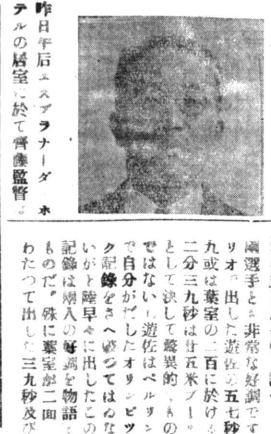 昨日午后エスプラナーダ ホ
テルの居室に於て齊藤監督は
剛選手とも非常な好調です
リオで出した遊佐の五七秒
九或は葉室の二百に於ける
二分三九秒は廿五米プール
として決して驚異的なもの
ではないし遊佐はベルリン
で自分がだしたオリンピツ
ク記録をさへ破つてはゐな
いがと陸早々に出したこの
記録は兩人の好調を物語る
ものだ。殊に葉室が二回
わたつて出した三九秒及び